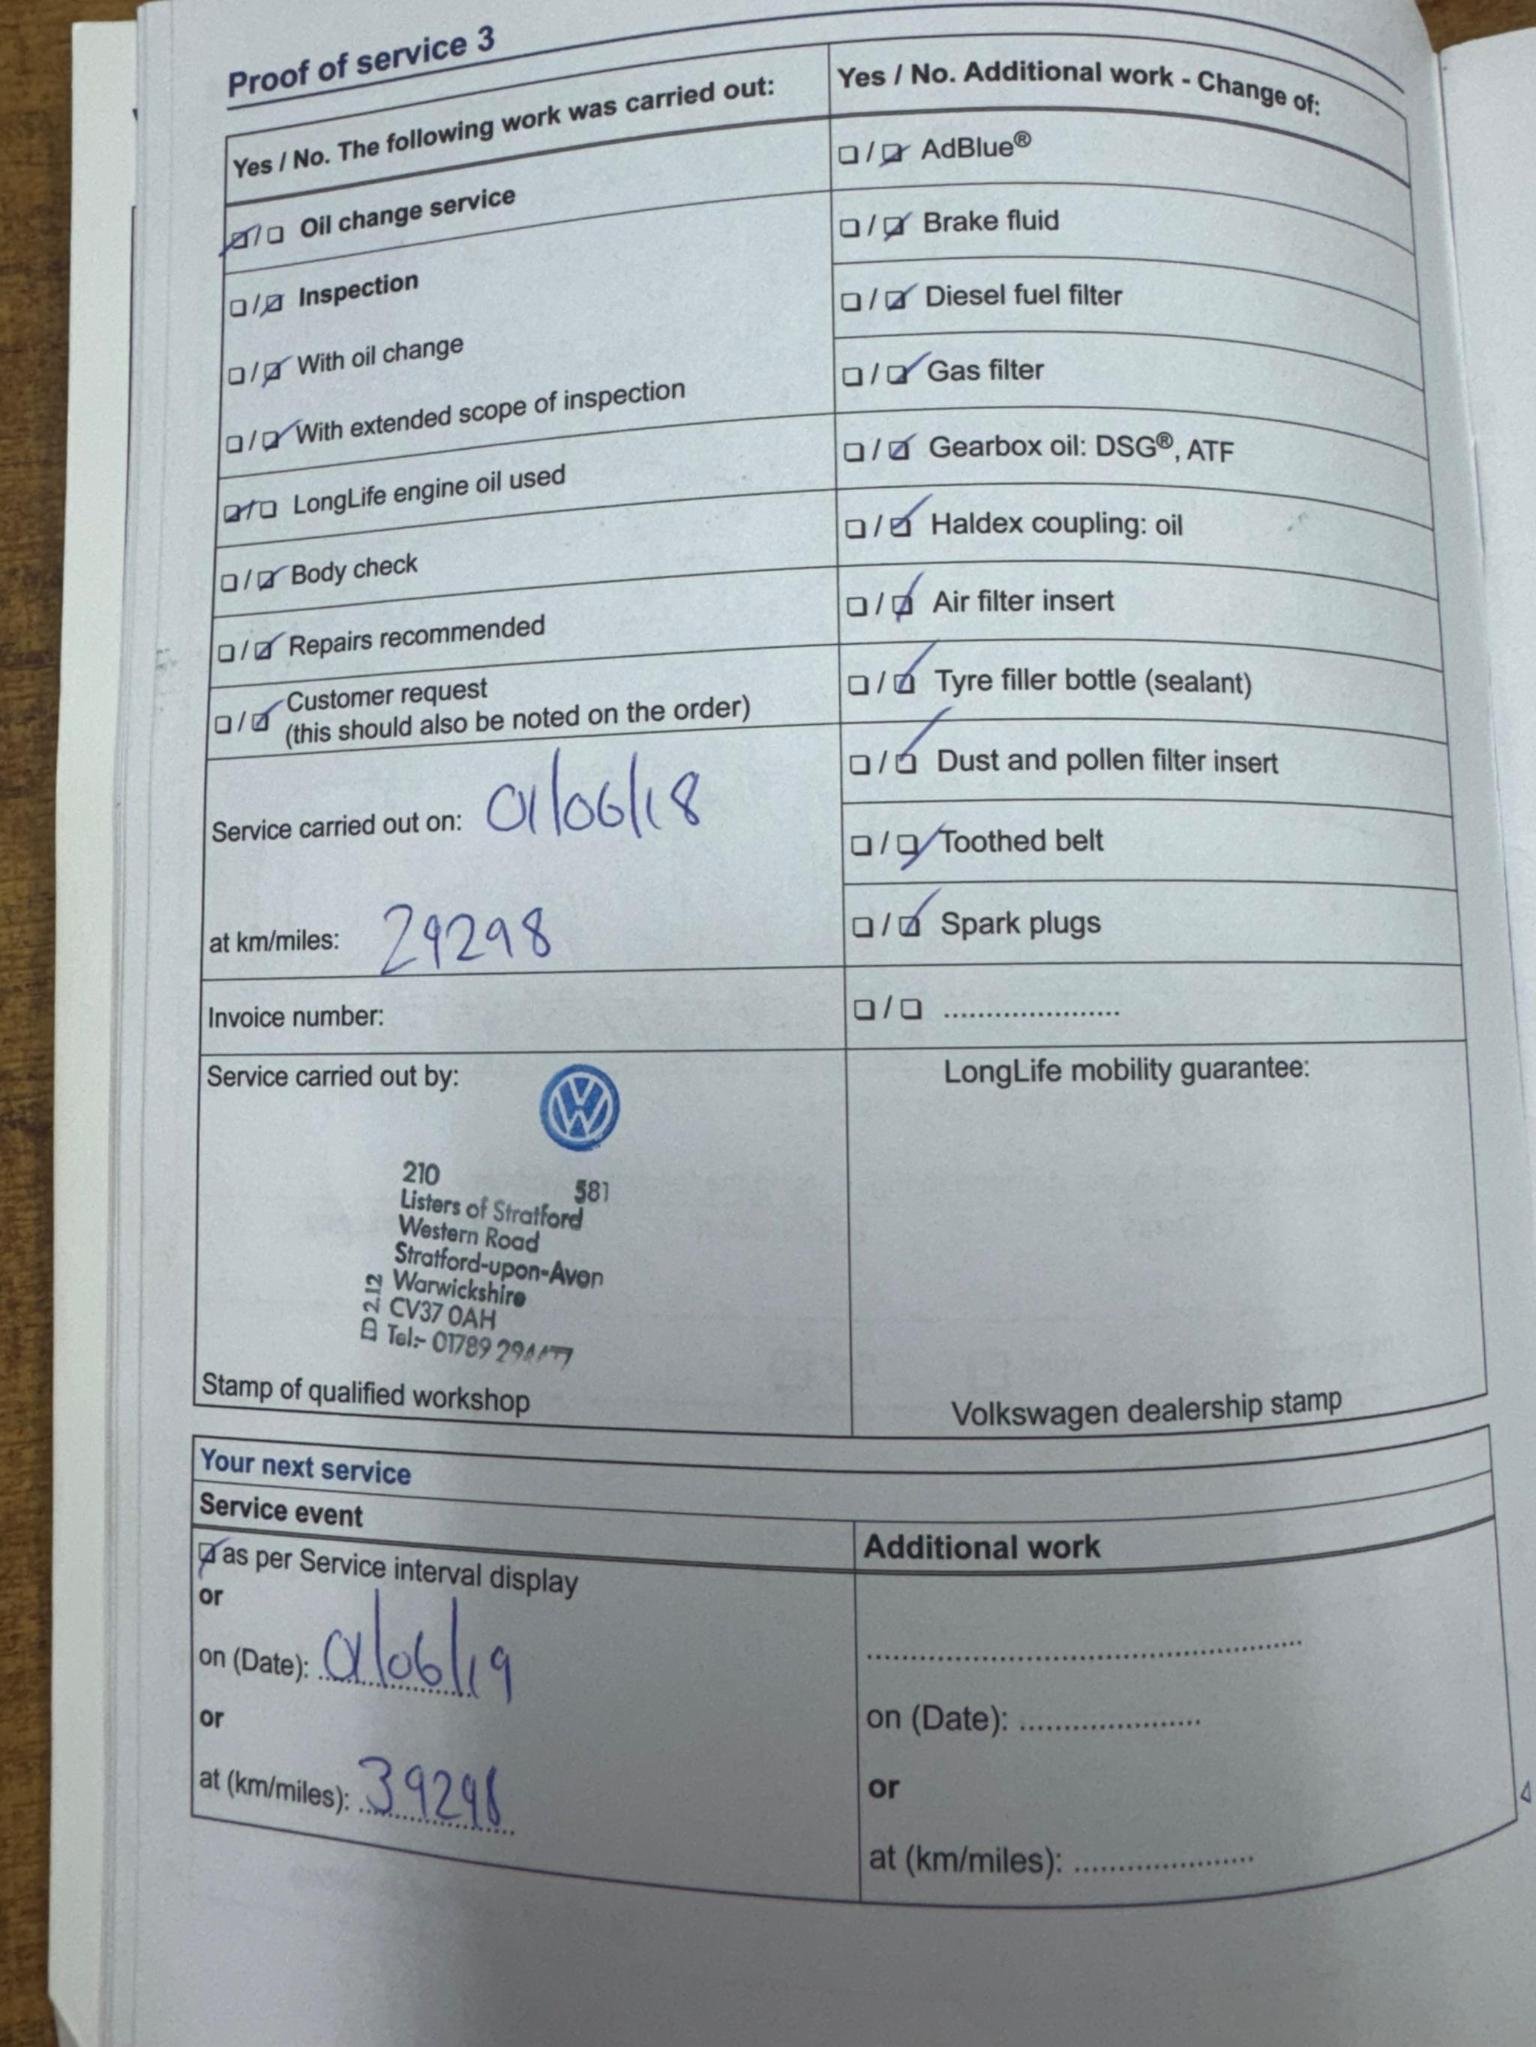 Proof of service 3
Yes / No. The following work was carried out:
☑/☐ Oil change service
☐/☑ Inspection
☐/☑ With oil change
☐/☑ With extended scope of inspection
☑/☐ LongLife engine oil used
☐/☑ Body check
☐/☑ Repairs recommended
☐/☑ Customer request
(this should also be noted on the order)
Service carried out on: 01/06/18
at km/miles: 29298
Invoice number:
Service carried out by:
210 581
Listers of Stratford
Western Road
Stratford-upon-Avon
Warwickshire
CV37 0AH
Tel:- 01789
2.12
Stamp of qualified workshop
Yes / No. Additional work - Change of:
☐/☑ AdBlue®
☐/☑ Brake fluid
☐/☑ Diesel fuel filter
☐/☑ Gas filter
☐/☑ Gearbox oil: DSG®, ATF
☐/☑ Haldex coupling: oil
☐/☑ Air filter insert
☐/☑ Tyre filler bottle (sealant)
☐/☑ Dust and pollen filter insert
☐/☑ Toothed belt
☐/☑ Spark plugs
☐/☐ ......................
LongLife mobility guarantee:
Volkswagen dealership stamp
Your next service
Service event
☑ as per Service interval display
or
on (Date): 01/06/19
or
at (km/miles): 39298
Additional work
..................................................
on (Date): ......................
or
at (km/miles): ......................